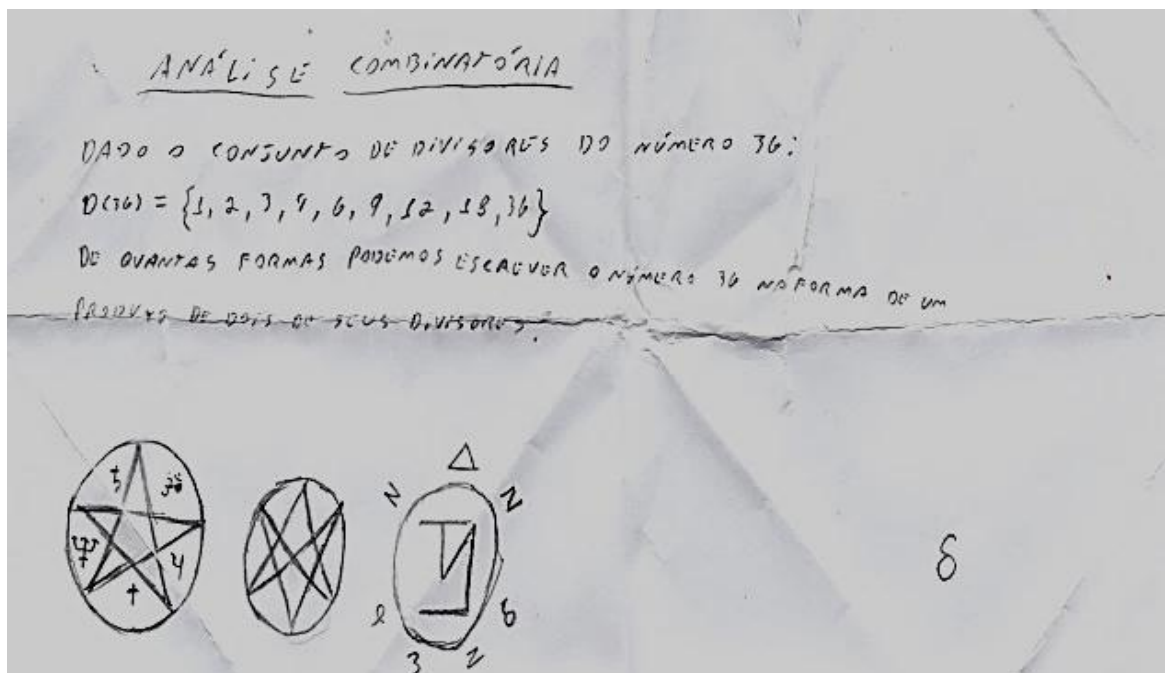 ANÁLISE COMBINATÓRIA
DADO O CONJUNTO DE DIVISORES DO NÚMERO 36:
D(36) = {1, 2, 3, 4, 6, 9, 12, 18, 36}
DE QUANTAS FORMAS PODEMOS ESCREVER O NÚMERO 36 NA FORMA DE UM
PRODUTO DE DOIS DE SEUS DIVISORES?